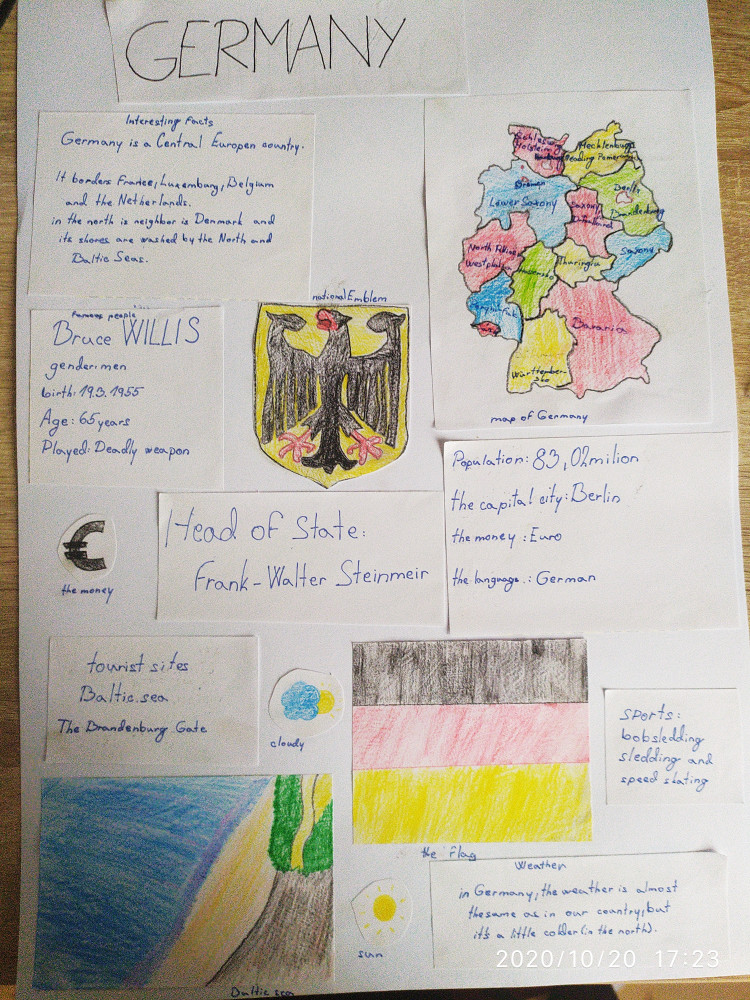 GERMANY
Interesting facts
Germany is a Central Europen country.
It borders France, Luxemburg, Belgium
and the Netherlands.
in the north is neighbor is Denmark and
its shores are washed by the North and
Baltic Seas.
Schleswig
Holstein
Mecklenburg
Bremen
Lower Saxony
Berlin
Brandenburg
Saxony
Saxony
Westphalia
Thuringia
Bavaria
map of Germany
Famous people
Bruce WILLIS
gender: men
birth: 19.3.1955
Age: 65 years
Played: Deadly weapon
national Emblem
Population: 83,02 milion
the capital city: Berlin
the money: Euro
the language: German
€
the money
Head of State:
Frank-Walter Steinmeir
tourist sites
Baltic sea
The Brandenburg Gate
cloudy
the flag
sports:
bobsledding
sledding and
speed skating
Baltic sea
sun
Weather
in Germany, the weather is almost
thesame as in our country, but
it's a little colder (in the north).
2020/10/20 17:23